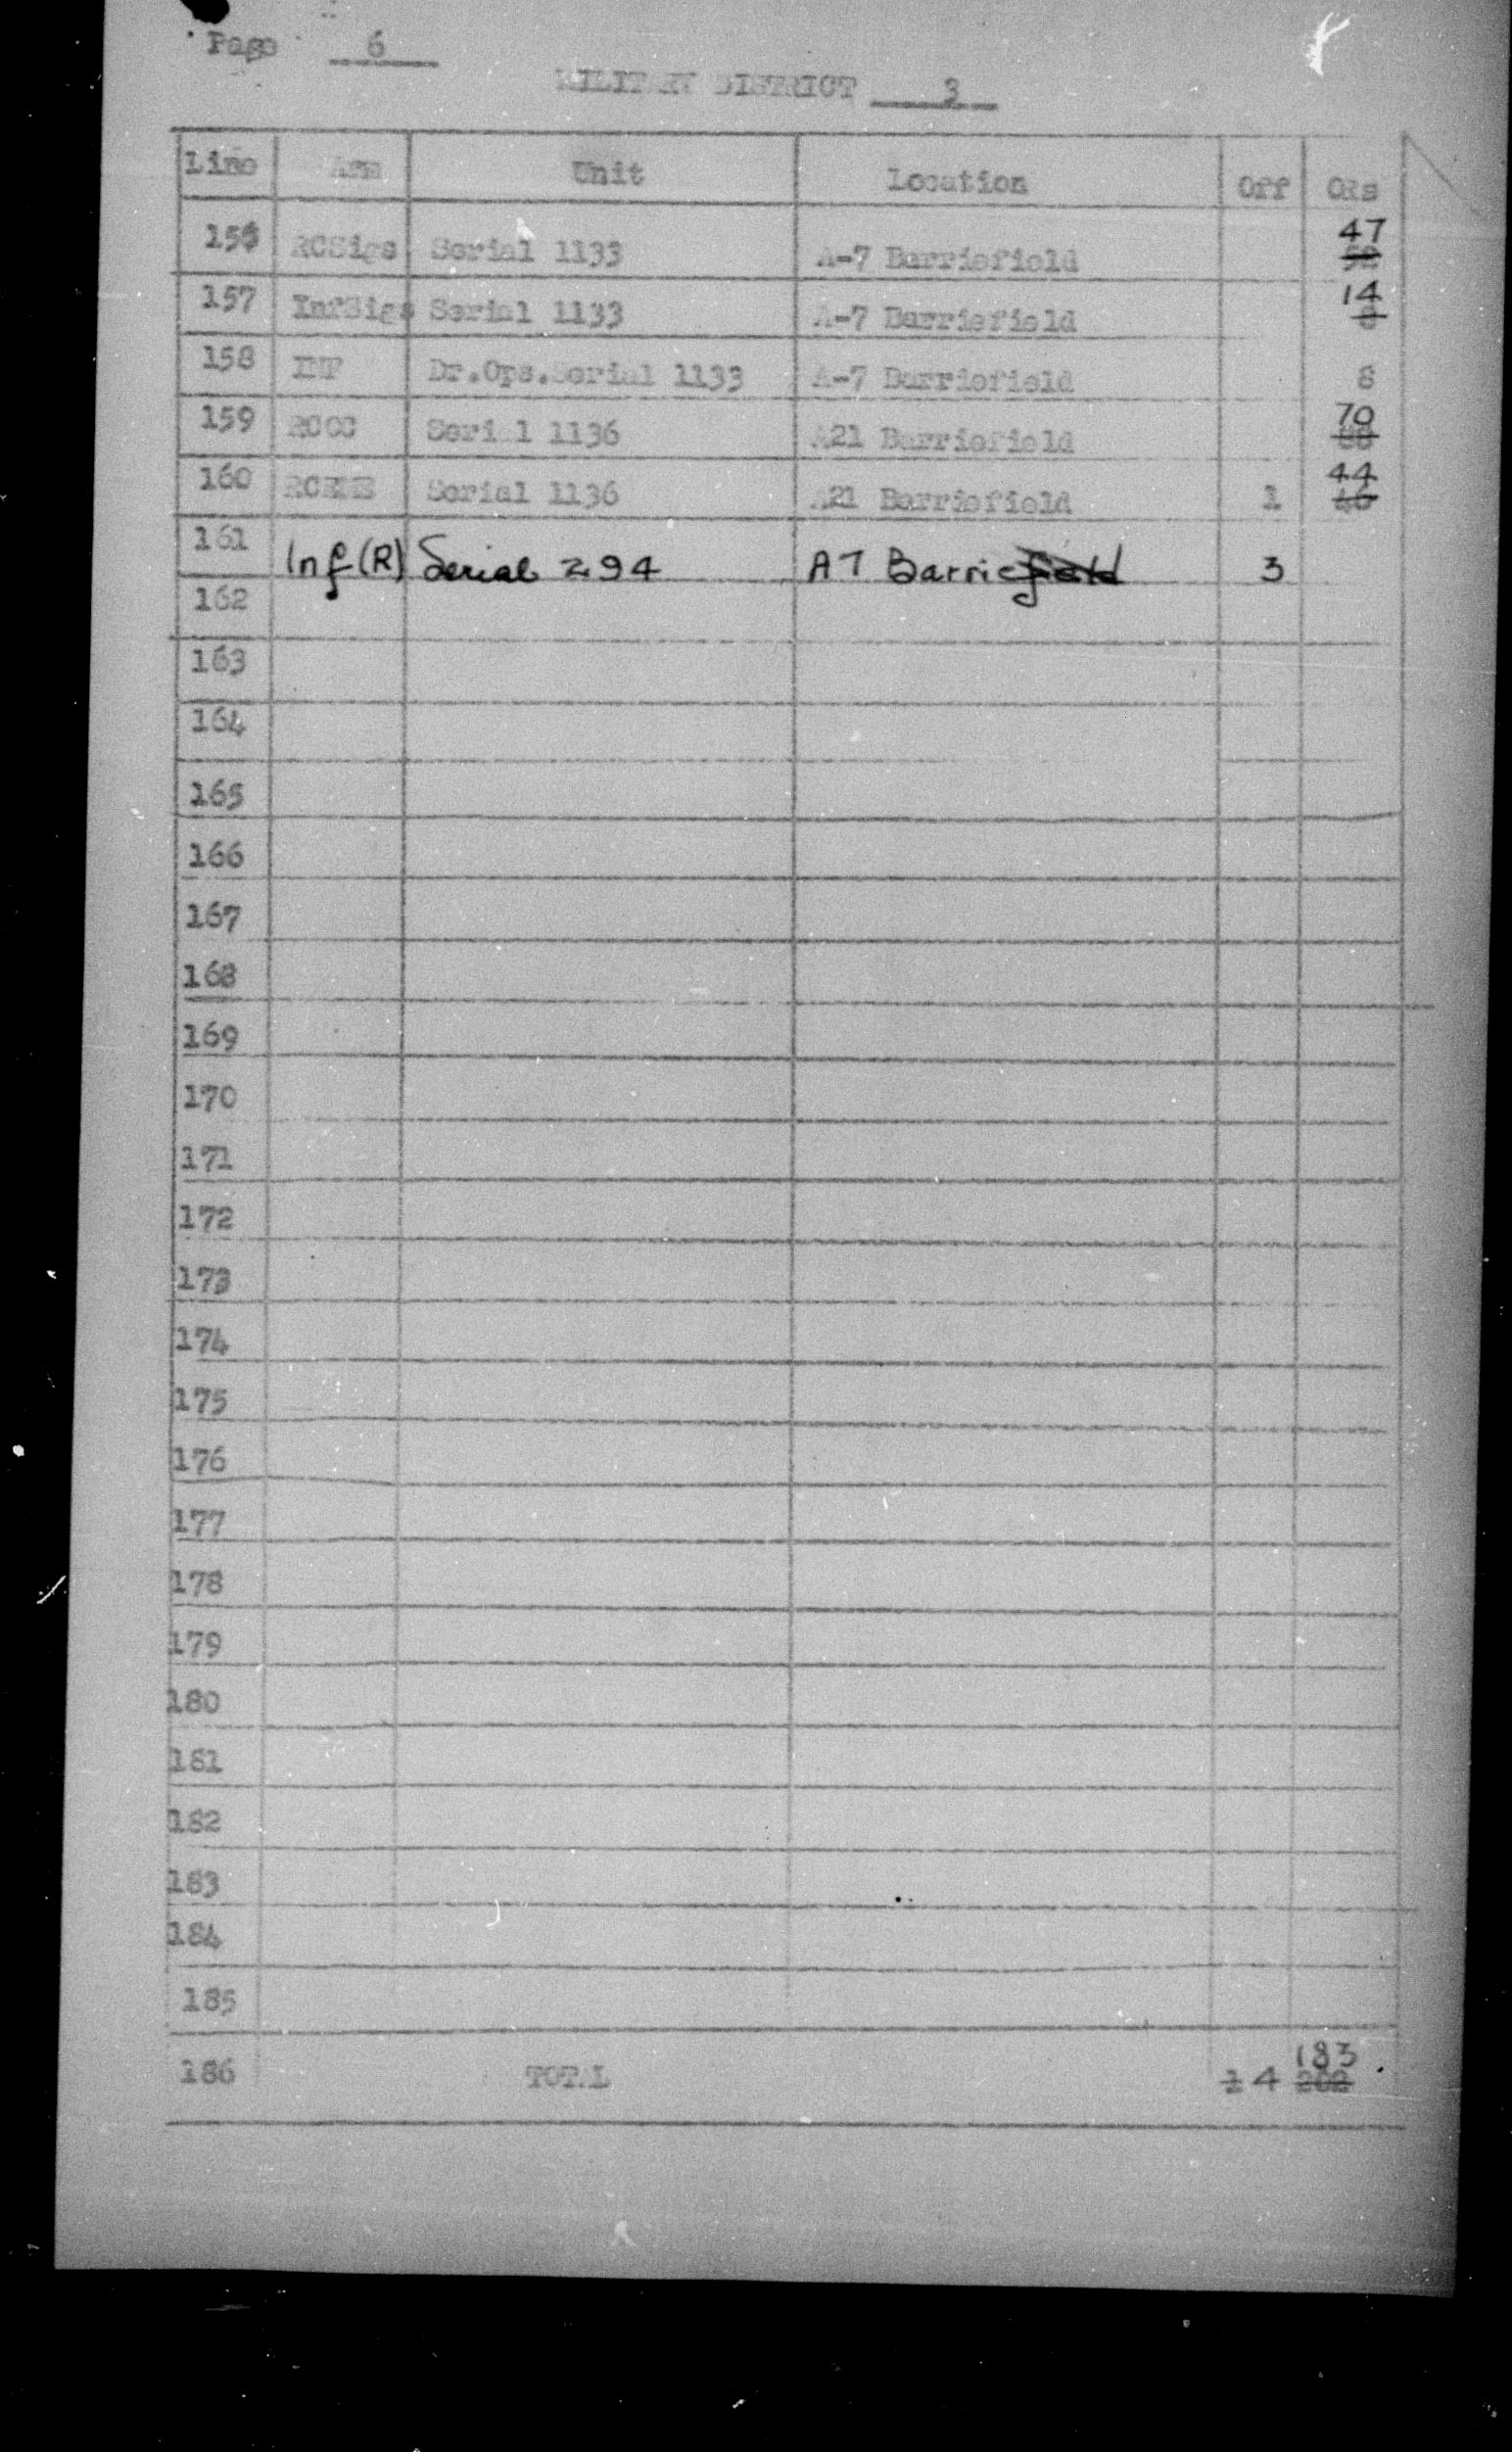 Page 6
MILITARY DISTRICT 3
Line Arm Unit Location Off ORs
156 RCSigs Serial 1133 A-7 Barriefield 47
157 InfSigs Serial 1133 A-7 Barriefield 14 8
158 INF Dr.Ops.Serial 1133 A-7 Barriefield 8
159 RCOC Serial 1136 A21 Barriefield 70
160 RCEME Serial 1136 A21 Barriefield 1 44
161 Inf (R) Serial 294 A7 Barriefield 3
162
163
164
165
166
167
168
169
170
171
172
173
174
175
176
177
178
179
180
181
182
183
184
185
186 TOTAL 1 4 183 202